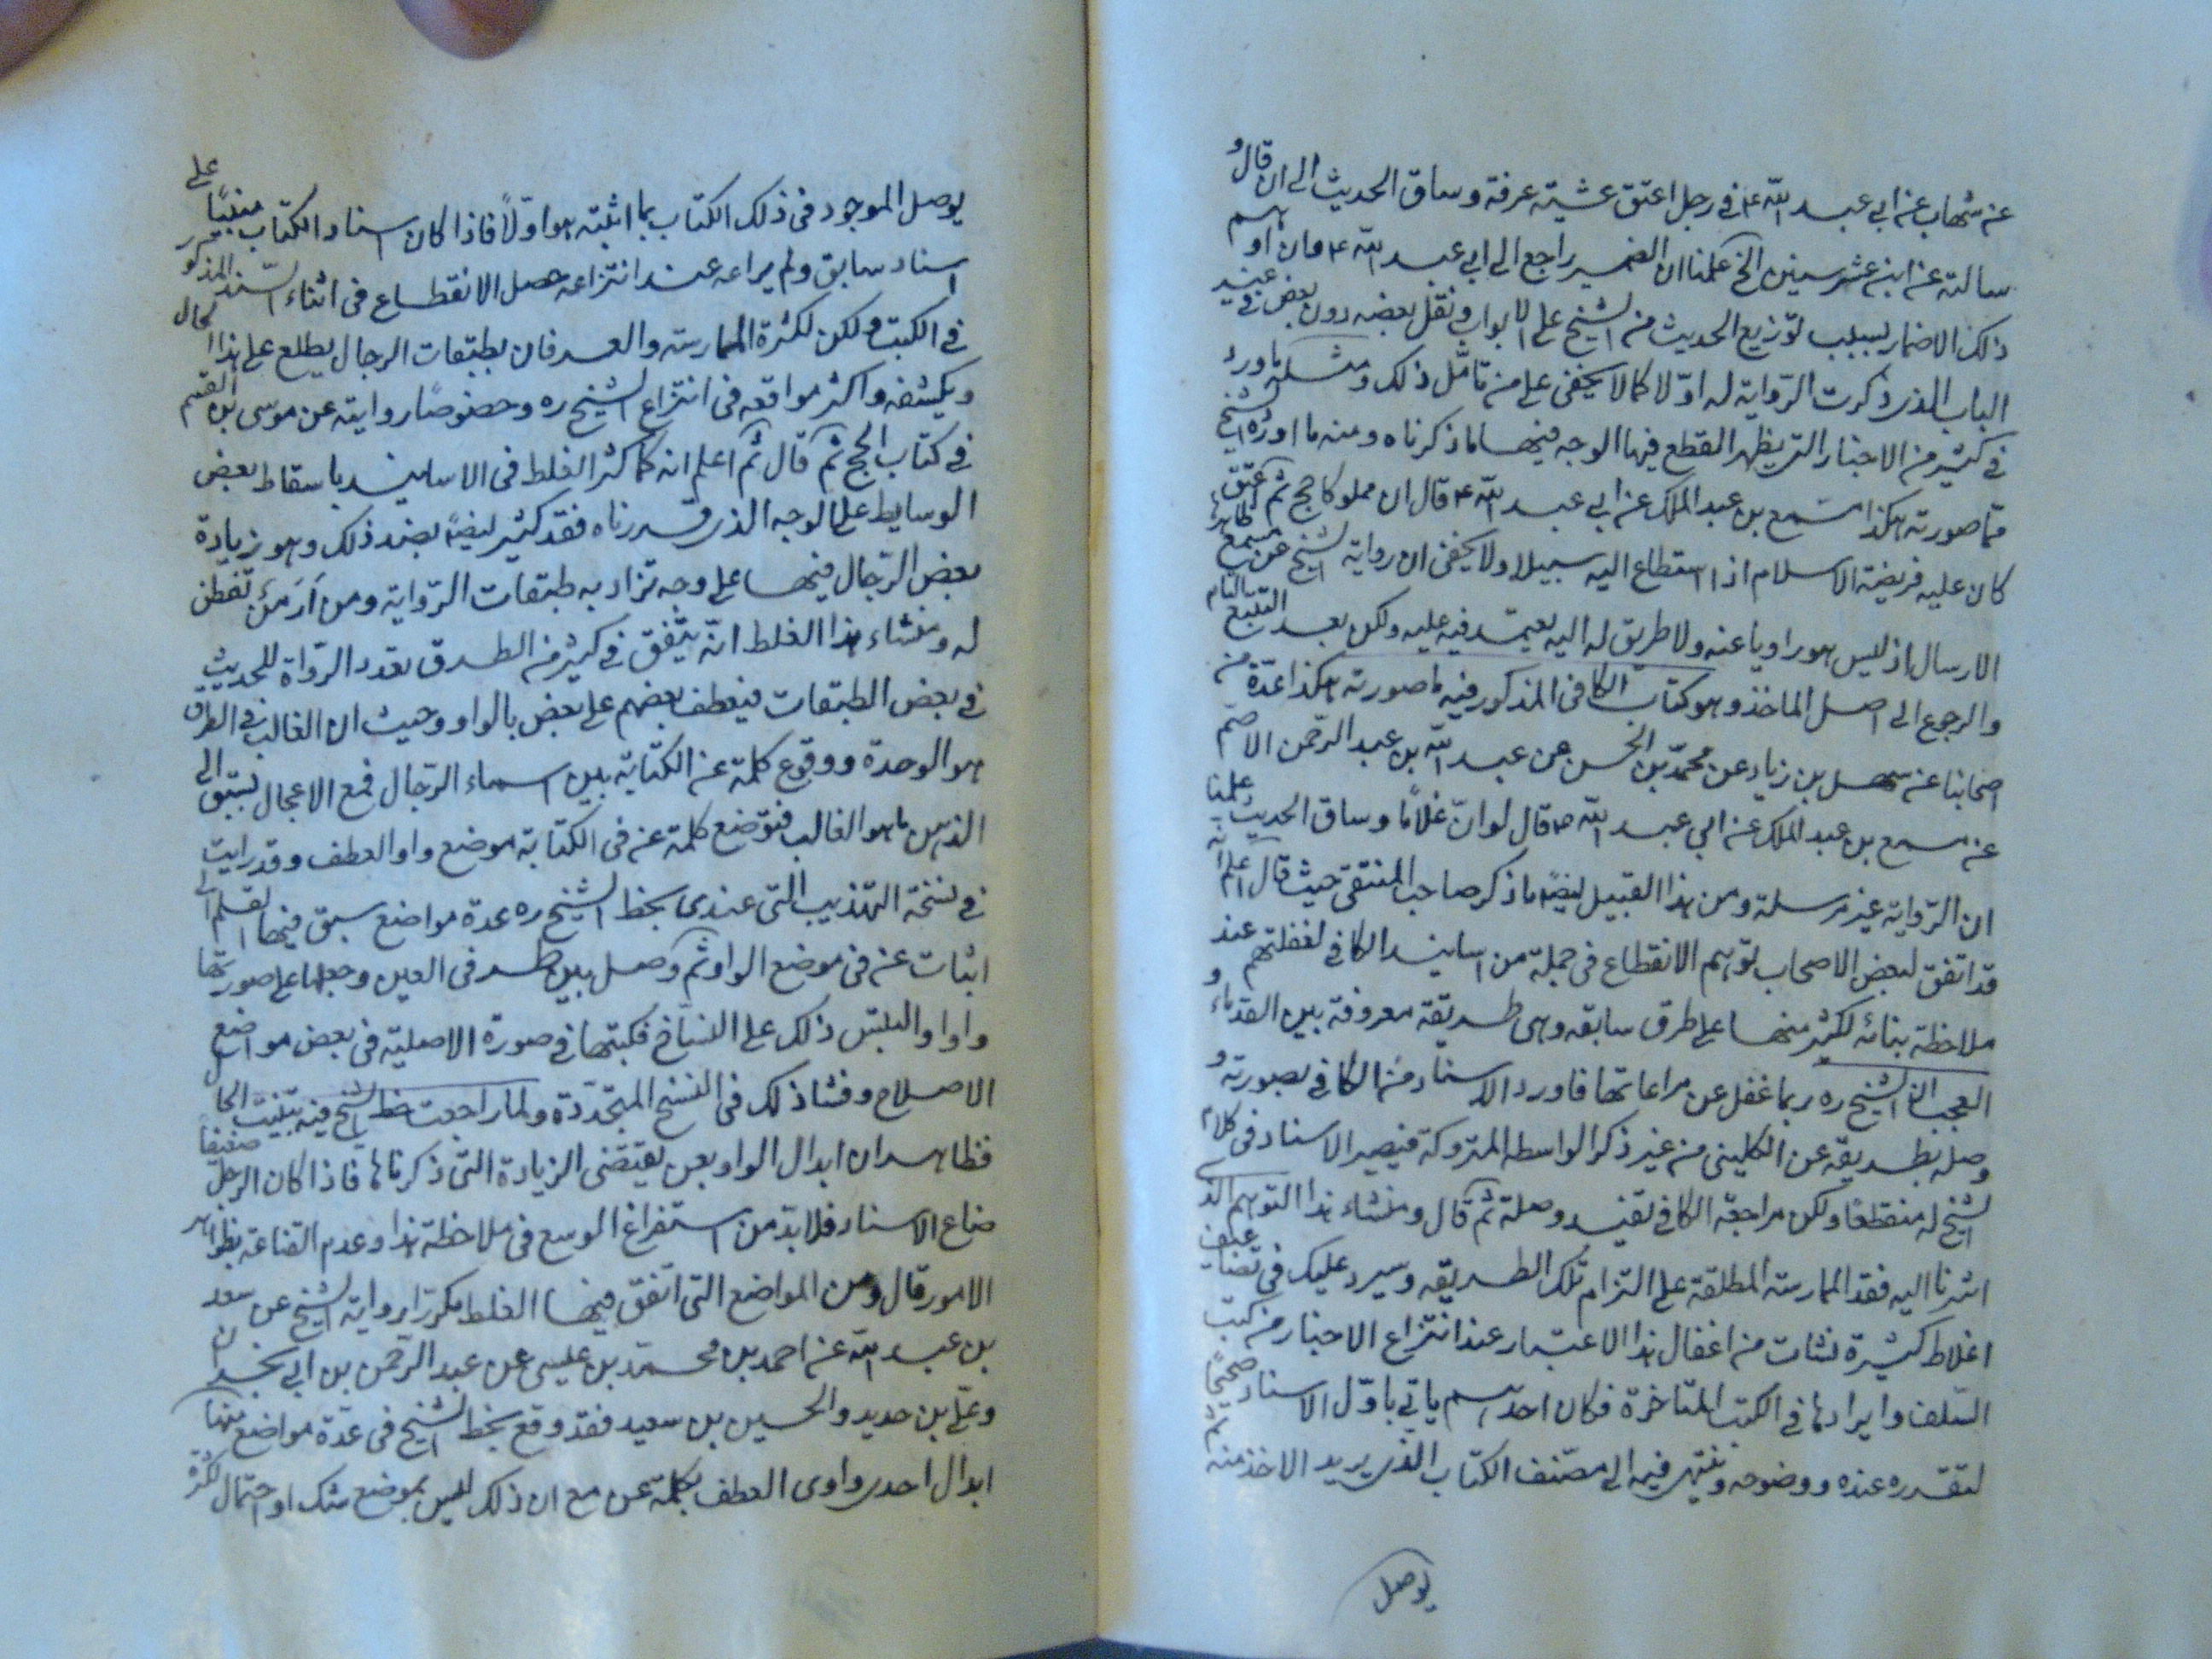 عن شهاب عن ابي عبد الله ع في رجل اعتق عشية عرفة وساق الحديث الى ان قال و
سالته عن ابن عشر سنين الخ علمنا ان الضمير راجع الى ابي عبد الله ع وان اوهم
ذلك الاضمار بسبب توزيع الحديث من الشيخ على الابواب ونقل بعضه دون بعض في غير
الباب الذي ذكرت الرواية له اولا كما لا يخفى على من تامّل ذلك ومثله ما ورد
في كثير من الاخبار التي يظهر القطع فيها الوجه فيها ما ذكرناه ومنه ما اورده الشيخ
مما صورته هكذا مسمع بن عبد الملك عن ابي عبد الله ع قال ان مملوكا حج ثم عتق
كان عليه فريضة الاسلام اذا استطاع اليه سبيلا ولا يخفى ان رواية الشيخ عن مسمع ظاهرها
الارسال اذ ليس هو راويا عنه ولا طريق له اليه يعتمد فيه عليه ولكن بعد التتبع التام
والرجوع الى اصل الماخذ وهو كتاب الكافي المذكور فيه ما صورته هكذا عدة من
اصحابنا عن سهل بن زياد عن محمّد بن الحسن عن عبد الله بن عبد الرحمن الاصم
عن مسمع بن عبد الملك عن ابي عبد الله ع قال لو انّ غلامًا وساق الحديث علمنا
ان الرواية غير مرسلة ومن هذا القبيل ايضًا ما ذكر صاحب المنتقى حيث قال اعلم انه
قد اتفق لبعض الاصحاب توهم الانقطاع في جملة من اسانيد الكافي لغفلتهم عند
ملاحظة بنائه لكثير منها على طرق سابقه وهى طريقة معروفة بين القدماء و
العجب ان الشيخ ره ربما غفل عن مراعاتها فاورد الاسناد من الكافي بصورته و
وصله بطريقه عن الكليني من غير ذكر الواسطه المتروكة فيصير الاسناد في كلام
الشيخ له منقطعًا ولكن مراجعة الكافي تفيد وصله ثم قال ومنشاء هذا التوهم الذي
اشرنا اليه فقد الممارسة المطلقة على التزام تلك الطريقه وسيرد عليك في تضاعيف
اغلاط كثيرة نشات من اغفال هذا الاعتبار عند انتزاع الاخبار من كتب
السّلف وايرادها في الكتب المتاخرة فكان احدهم ياتي باوّل الاسناد صحيحًا
لتقرره عنده ووضوحه وينتهي فيه الى مصنف الكتاب الذي يريد الاخذ منه
يوصل
يوصل الموجود في ذلك الكتاب بما اثبته هو اولًا فاذا كان اسناد الكتاب مبنيًا على
اسناد سابق ولم يراعه عند انتزاعه حصل الانقطاع في اثناء السند المذكور
في الكتب ولكن لكثرة الممارسة والعرفان بطبقات الرجال يطلع على هذا الحال
ويكشفه واكثر مواقعه في انتزاع الشيخ ره وخصوصًا روايته عن موسى بن القسم
في كتاب الحج ثم قال ثم اعلم انه كما كثر الغلط في الاسانيد باسقاط بعض
الوسايط على الوجه الذي قررناه فقد كثر ايضًا بضد ذلك وهو زيادة
بعض الرّجال فيها على وجه تزاد به طبقات الرّواية ولم أر من تفطن
له ومنشاء هذا الغلط انّه يتّفق في كثير من الطرق تعدد الرّواة للحديث
في بعض الطبقات فيعطف بعضهم على بعض بالواو وحيث ان الغالب في الطرق
هو الوحدة ووقوع كلمة عن الكتابة بين اسماء الرّجال فمع الاعجال يسبق الى
الذهن ما هو الغالب فتوضع كلمة عن في الكتابة موضع واو العطف وقد رايت
في نسخة التهذيب التي عندي بخط الشيخ ره عدة مواضع سبق فيها القلم الى
اثبات عن في موضع الواو ثم وصل بين طرفي العين وجعلها على صورتها
واوا والتبس ذلك على النسّاخ فكتبها في صورة الاصليّة في بعض مواضع
الاصلاح وفشا ذلك في النسخ المتجدّدة ولما راجعت خط الشيخ فيه تبينت الحال
فظاهر ان ابدال الواو بعن يقتضى الزيادة التى ذكرناها فاذا كان الرجل ضعيفًا
ضاع الاسناد فلا بد من استفراغ الوسع في ملاحظة هذا وعدم القناعة بظواهر
الامور قال ومن المواضع التى اتفق فيها الغلط مكرّرا رواية الشيخ عن سعد
بن عبد الله عن احمد بن محمد بن عليسى عن عبد الرّحمن بن ابي نجران
وعلي بن حديد والحسين بن سعيد فقد وقع بخط الشيخ في عدة مواضع منها
ابدال احدى واوى العطف بكلمة عن مع ان ذلك ليس بموضع شك او احتمال لكثرة